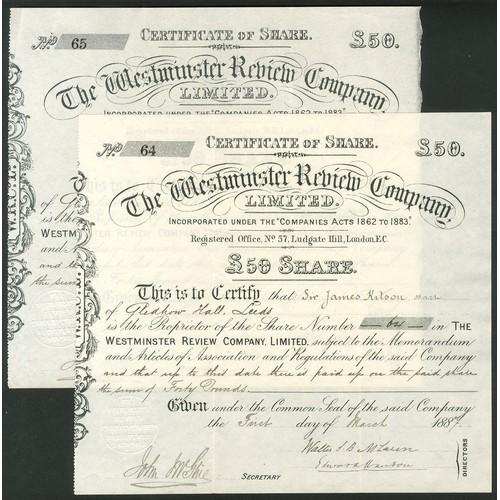 Nº 65 CERTIFICATE OF SHARE. £50.
The Westminster Review Company,
LIMITED.
INCORPORATED UNDER THE "COMPANIES ACTS 1862 TO 1883."
of Gl
is the
WESTM
and
and to
the sum
Nº 64 CERTIFICATE OF SHARE. £50.
The Westminster Review Company,
LIMITED.
INCORPORATED UNDER THE "COMPANIES ACTS 1862 TO 1883."
Registered Office, Nº 57, Ludgate Hill, London, E.C.
£50 SHARE.
This is to Certify that Sir James Kitson
of Gledhow Hall, Leeds
is the Proprietor of the Share Number 64 in THE
WESTMINSTER REVIEW COMPANY, LIMITED, subject to the Memorandum
and Articles of Association and Regulations of the said Company
and that up to this date there is paid up on the said share
the sum of Forty Pounds.
Given under the Common Seal of the said Company
the First day of March 1887.
Walter S. B. McLaren
DIRECTORS
John
SECRETARY